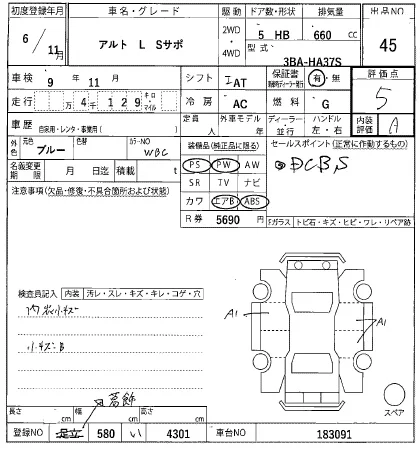 初度登録年月 車名・グレード 駆動 ドア数・形状 排気量 出品NO
6/11月 アルト L Sサポ 2WD・4WD 5 HB 660 cc 45
型式 3BA-HA37S
車検 9年 11月 シフト IAT 保証書 有・無 評価点
走行 万 4千 129 キロ・マイル 冷房 AC 燃料 G 5
車歴 自家用・レンタ・事業用( ) 定員 人 外車モデル 年 ディーラー・並行 ハンドル 左・右 内装評価 A
外色 元色 ブルー 色替 カラーNO WBC 装備品(純正品に限る) セールスポイント(正常に作動するもの)
名義変更期限 月 日迄 積載 t PS PW AW DCBS
注意事項(欠品・修復・不具合箇所および状態) SR TV ナビ
カワ エアB ABS
R券 5690 円 Fガラス トビ石・キズ・ヒビ・ワレ・リペア跡
検査員記入 内装 汚レ・スレ・キズ・キレ・コゲ・穴
内装小キズ
小キズB
A1
A1
スペア
葛飾
長さ cm 幅 cm 高さ cm
登録NO 足立 580 い 4301 車台NO 183091